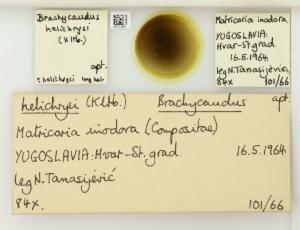 Brachycaudus
helichrysi
(Kltb.)
apt.
Matricaria inodora.
YUGOSLAVIA:
Hvar-St.grad
16.5.1964
leg N. Tanasijević.
84x. 101/66
helichrysi (Kltb.) Brachycaudus apt.
Matricaria inodora (Compositae)
YUGOSLAVIA: Hvar-St.grad. 16.5.1964
leg N. Tanasijević
84x. 101/66